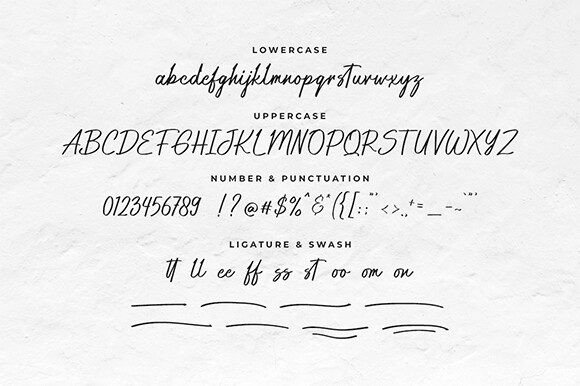 LOWERCASE
abcdefghijklmnopqrstuvwxyz
UPPERCASE
ABCDEFGHIJKLMNOPQRSTUVWXYZ
NUMBER & PUNCTUATION
0123456789 !?@#$%^&*({[:;"'<>.,+=_-~`"'
LIGATURE & SWASH
tt ll ee ff ss st oo om on